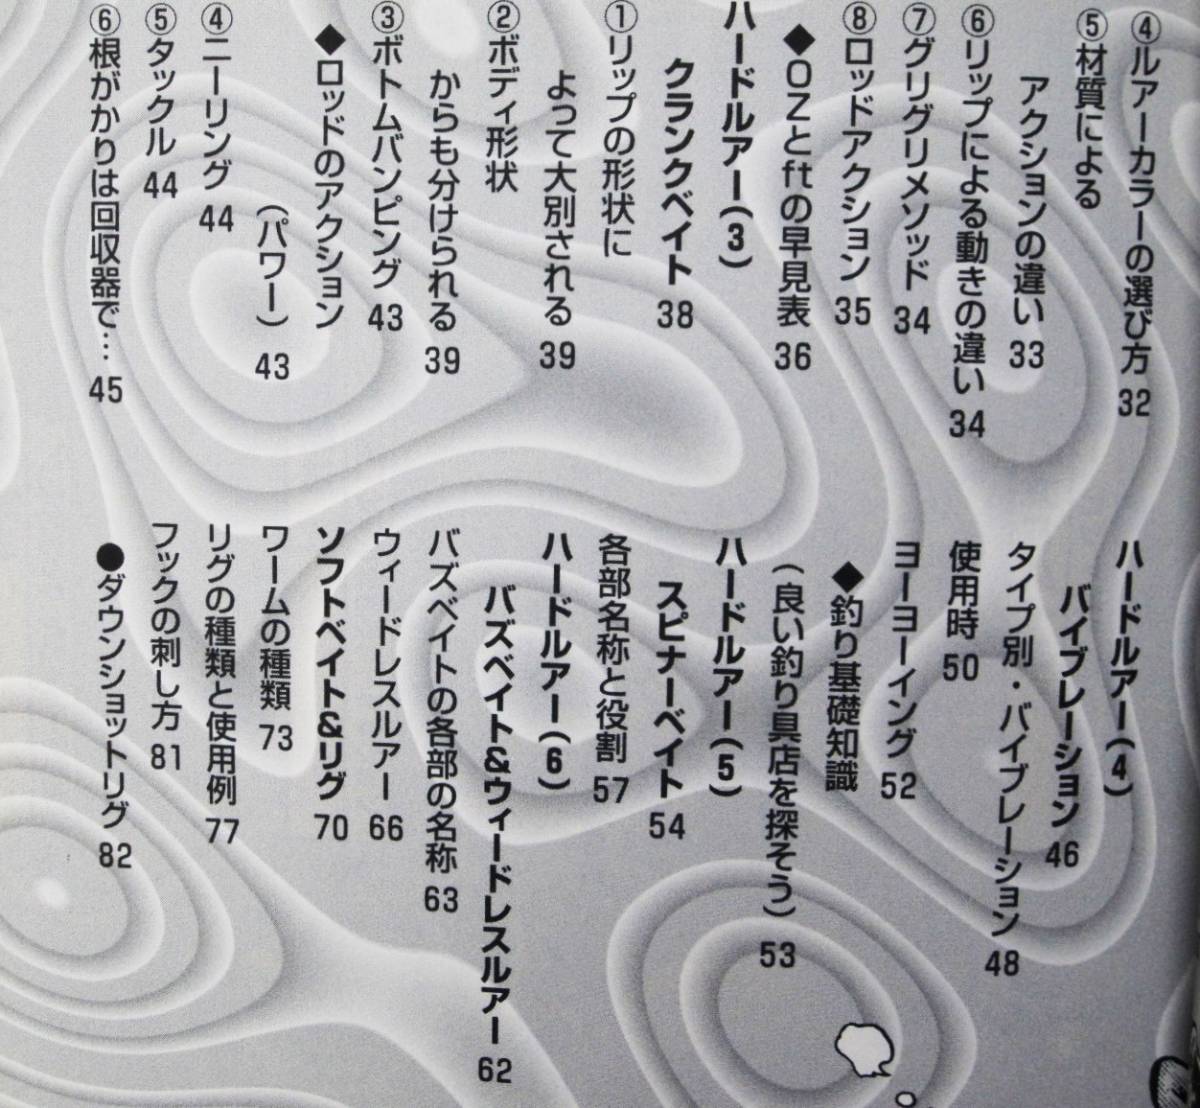 ④ルアーカラーの選び方 32
⑤材質による
アクションの違い 33
⑥リップによる動きの違い 34
⑦グリグリメソッド 34
⑧ロッドアクション 35
◆OZとftの早見表 36
ハードルアー(3)
クランクベイト 38
①リップの形状に
よって大別される 39
②ボディ形状
からも分けられる 39
③ボトムバンピング 43
◆ロッドのアクション
(パワー) 43
④ニーリング 44
⑤タックル 44
⑥根がかりは回収器で… 45
ハードルアー(4)
バイブレーション 46
タイプ別・バイブレーション 48
使用時 50
ヨーヨーイング 52
◆釣り基礎知識
(良い釣り具店を探そう) 53
ハードルアー(5)
スピナーベイト 54
各部名称と役割 57
ハードルアー(6)
バズベイト&ウィードレスルアー 62
バズベイトの各部の名称 63
ウィードレスルアー 66
ソフトベイト&リグ 70
ワームの種類 73
リグの種類と使用例 77
フックの刺し方 81
●ダウンショットリグ 82